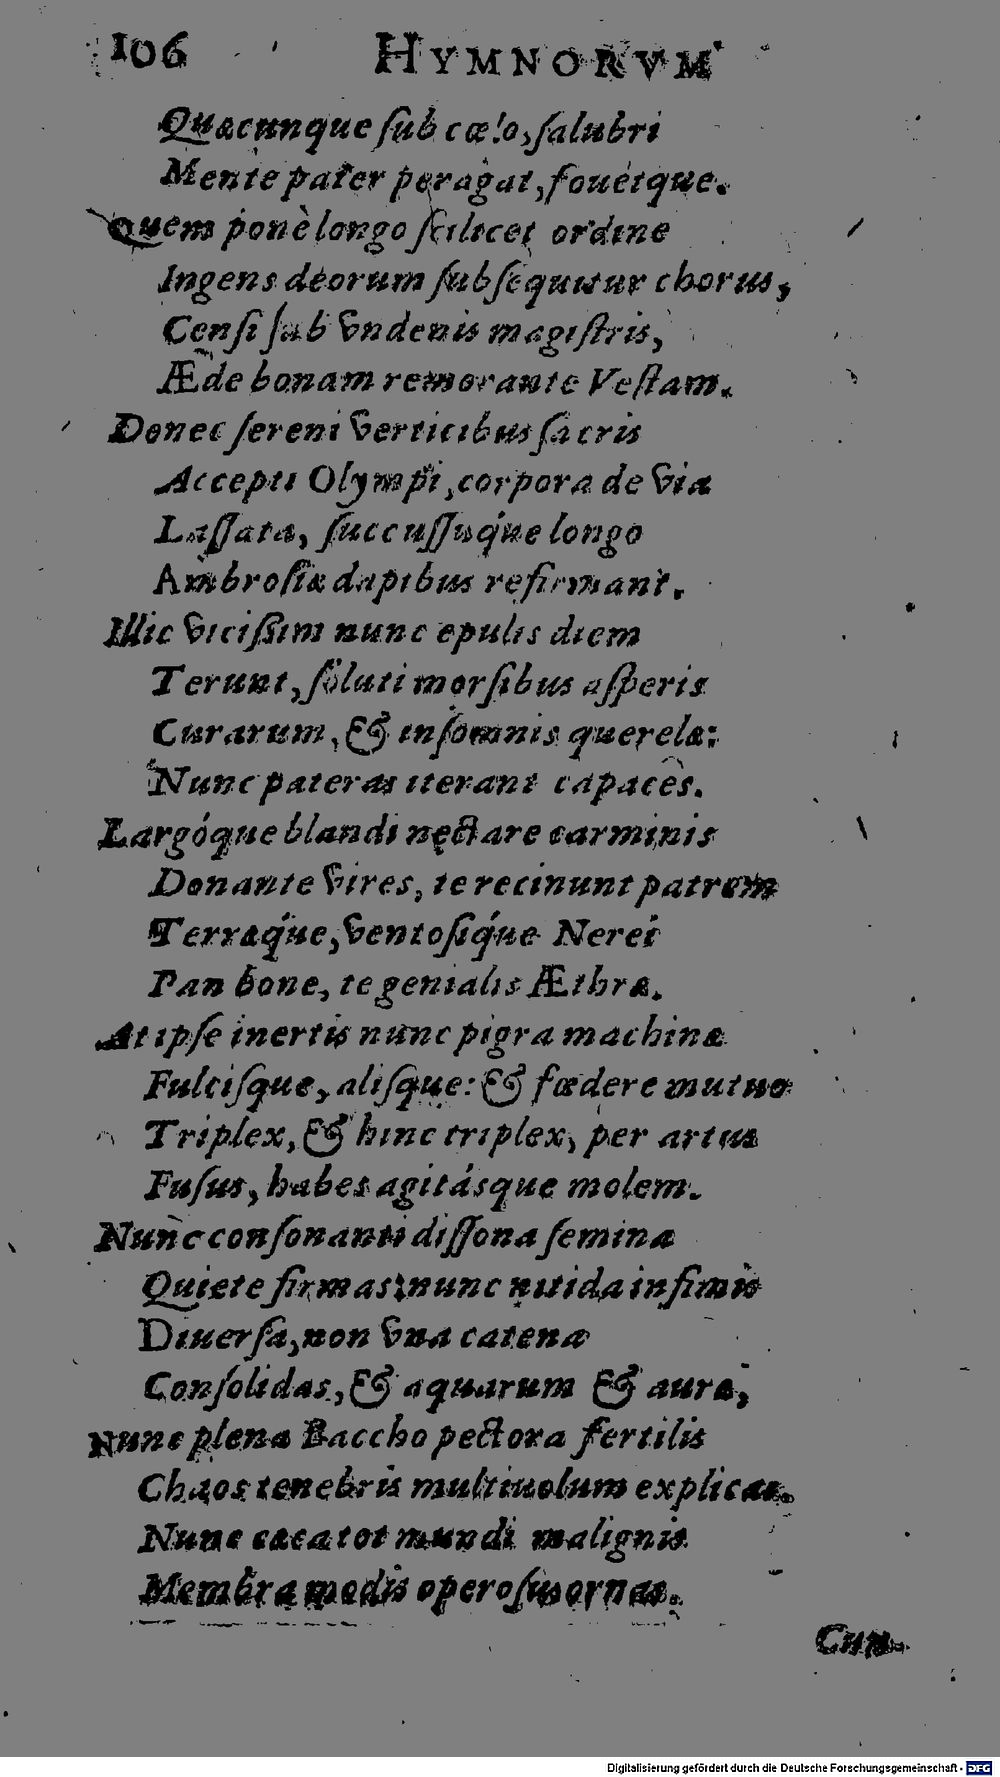 106 HYMNORVM
Quæcunque ſub cœlo, ſalubri
Mente pater peragat, fouetque.
Quem ponè longo ſcilicet ordine
Ingens deorum ſubſequitur chorus,
Cenſi ſub vndenis magiſtris,
Æde bonam remorante Veſtam.
Donec ſereni verticibus ſacris
Accepti Olympi, corpora de via
Laſſata, ſuccuſſuq́ue longo
Ambroſiæ dapibus refirmant.
Illic viciſſim nunc epulis diem
Terunt, ſoluti morſibus aſperis
Curarum, & inſomnis querelæ:
Nunc pateras iterant capaces.
Largóque blandi nectare carminis
Donante vires, te recinunt patrem
Terræq́ue, ventoſiq́ue Nerei
Pan bone, te genialis Æthræ.
At ipſe inertis nunc pigra machinæ
Fulciſque, aliſque: & fœdere mutuo
Triplex, & hinc triplex, per artus
Fuſus, habes agitásque molem.
Nunc conſonanti diſſona ſemina
Quiete firmas: nunc nitida infimis
Diuerſa, non vna catena
Conſolidas, & aquarum & auræ,
Nunc plena Baccho pectora fertilis
Chaos tenebris multiuolum explicas.
Nunc cæca tot mundi malignis
Membra modis operoſus ornas.
Cun-
Digitalisierung gefördert durch die Deutsche Forschungsgemeinschaft - DFG